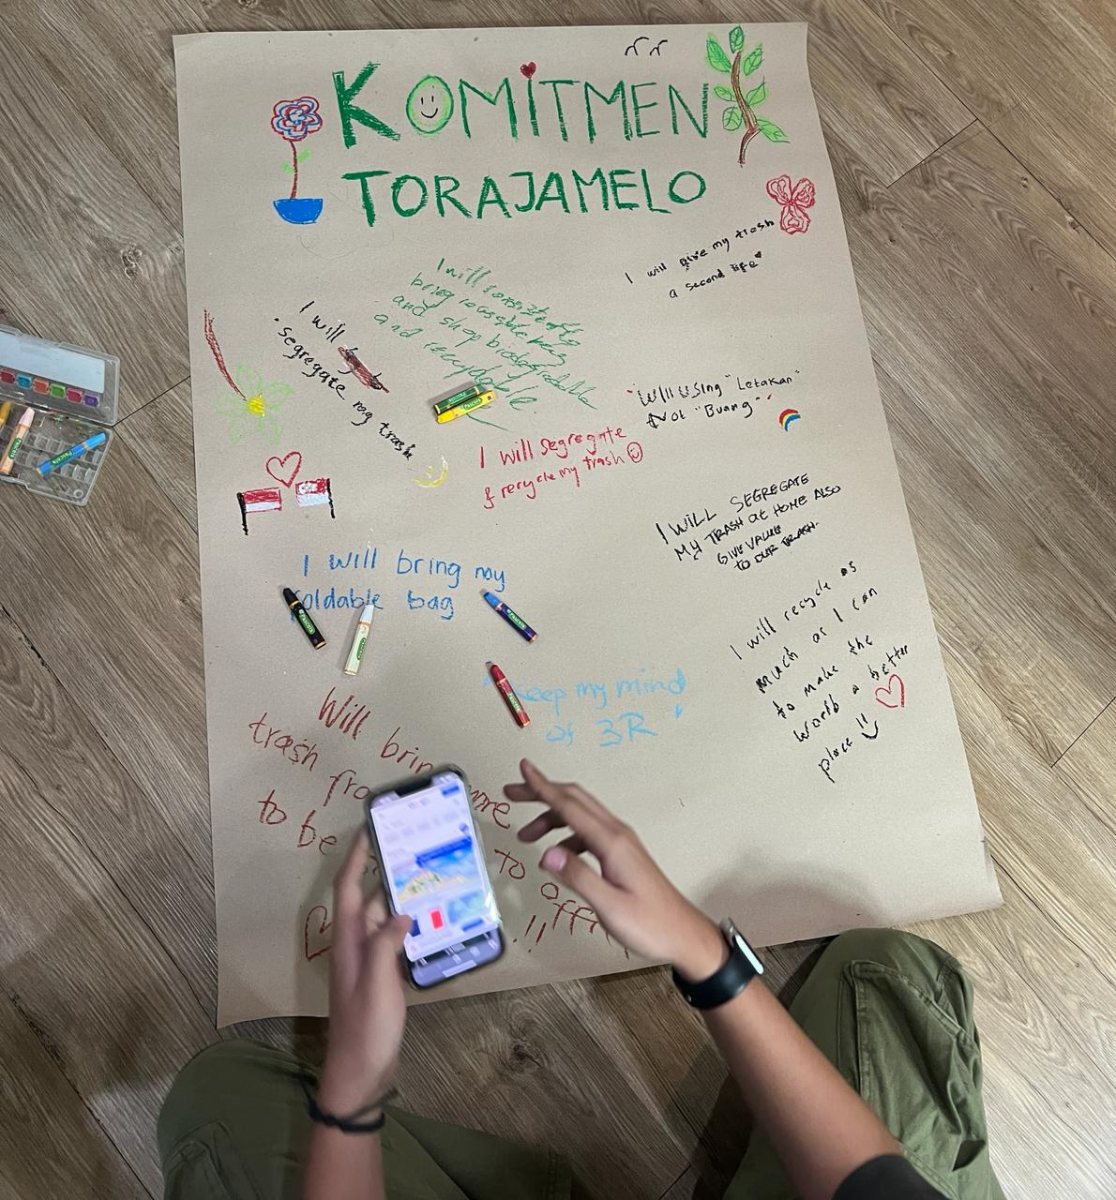 KOMITMEN
TORAJAMELO
I will give my trash
a second life
I will consistently
bring reusable bag
and shop biodegradable
and recyclable.
I will
segregate my trash
"Will using "Letakan"
Not "Buang"
I will segregate
& recycle my trash
I WILL SEGREGATE
MY TRASH at HOME ALSO
GIVE VALUE
TO OUR TRASH.
I will bring my
foldable bag
I will recycle as
much as I can
to make the
world a better
place !!
keep my mind
of 3R
Will bring more
trash
to be to
!!